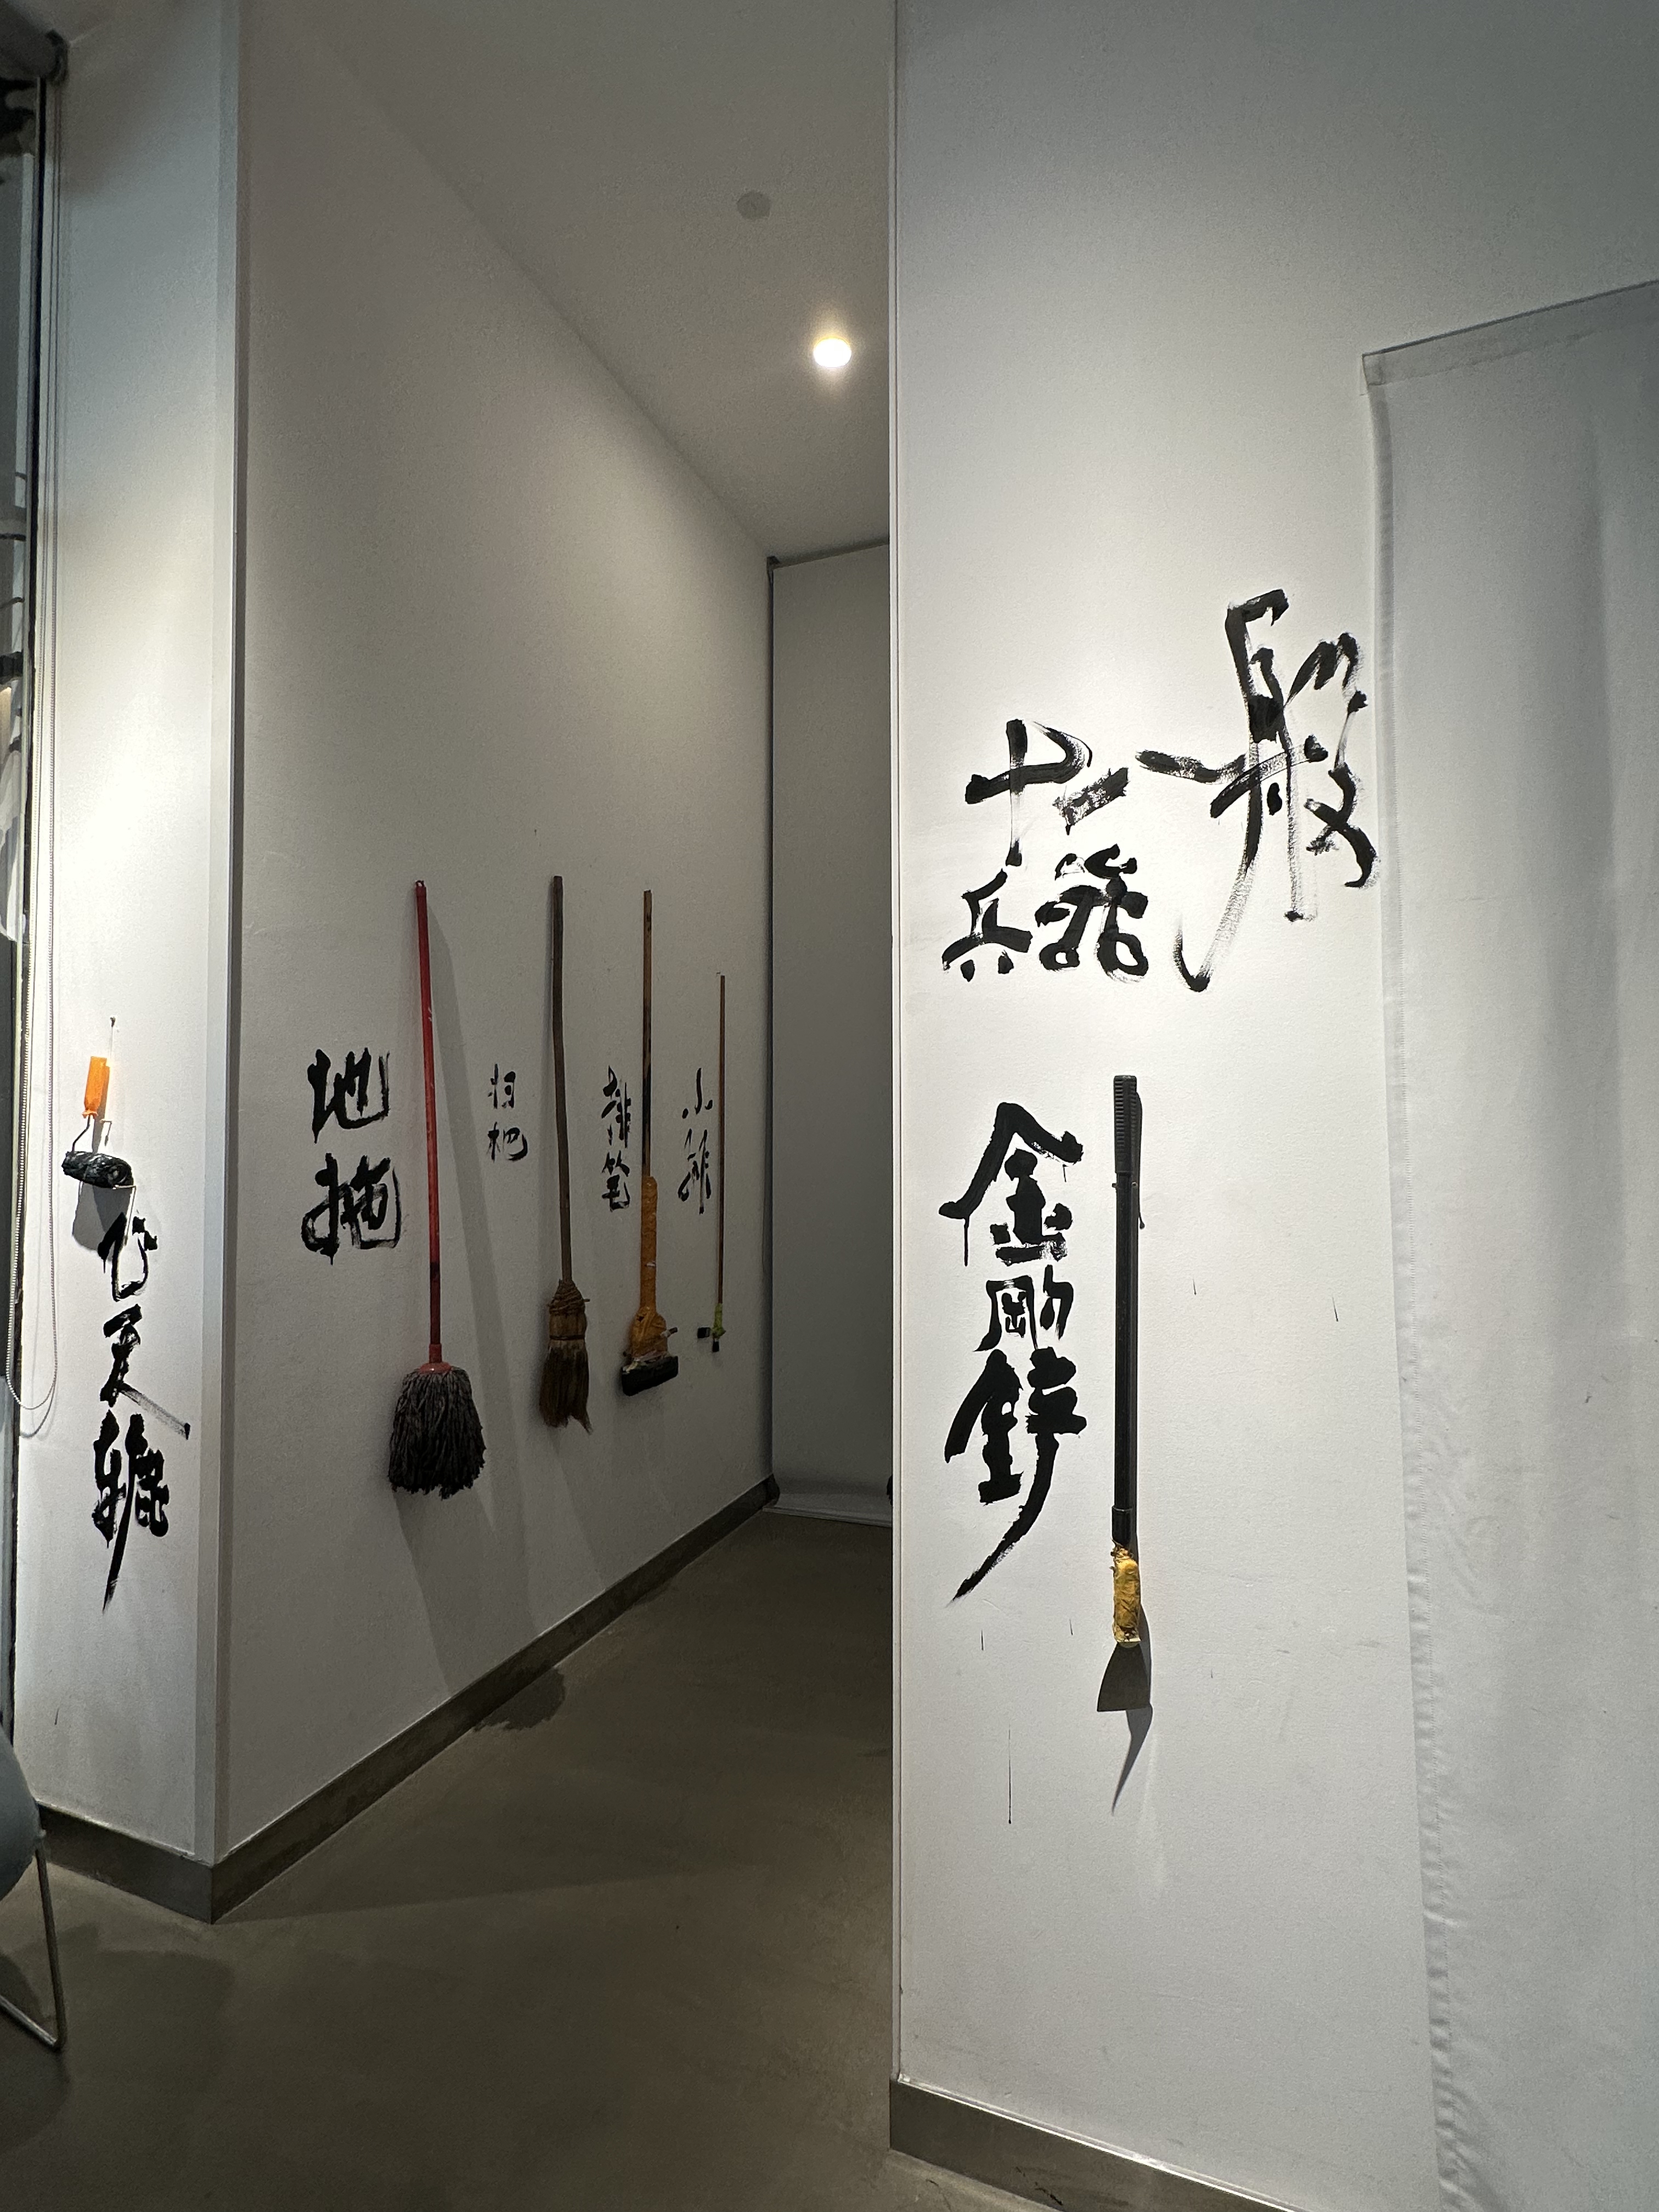 十八般
兵器
金剛铲
飞天辘
地拖
扫杷
排笔
小排